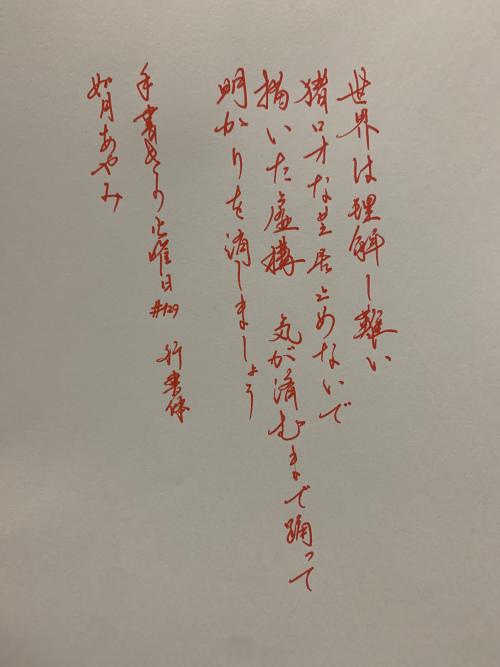 世界は理解し難い
猪口才な芝居止めないで
描いた虚構 気が済むまで踊って
明かりを消しましょう
手書きの火曜日 #129 行書体
如月あやみ